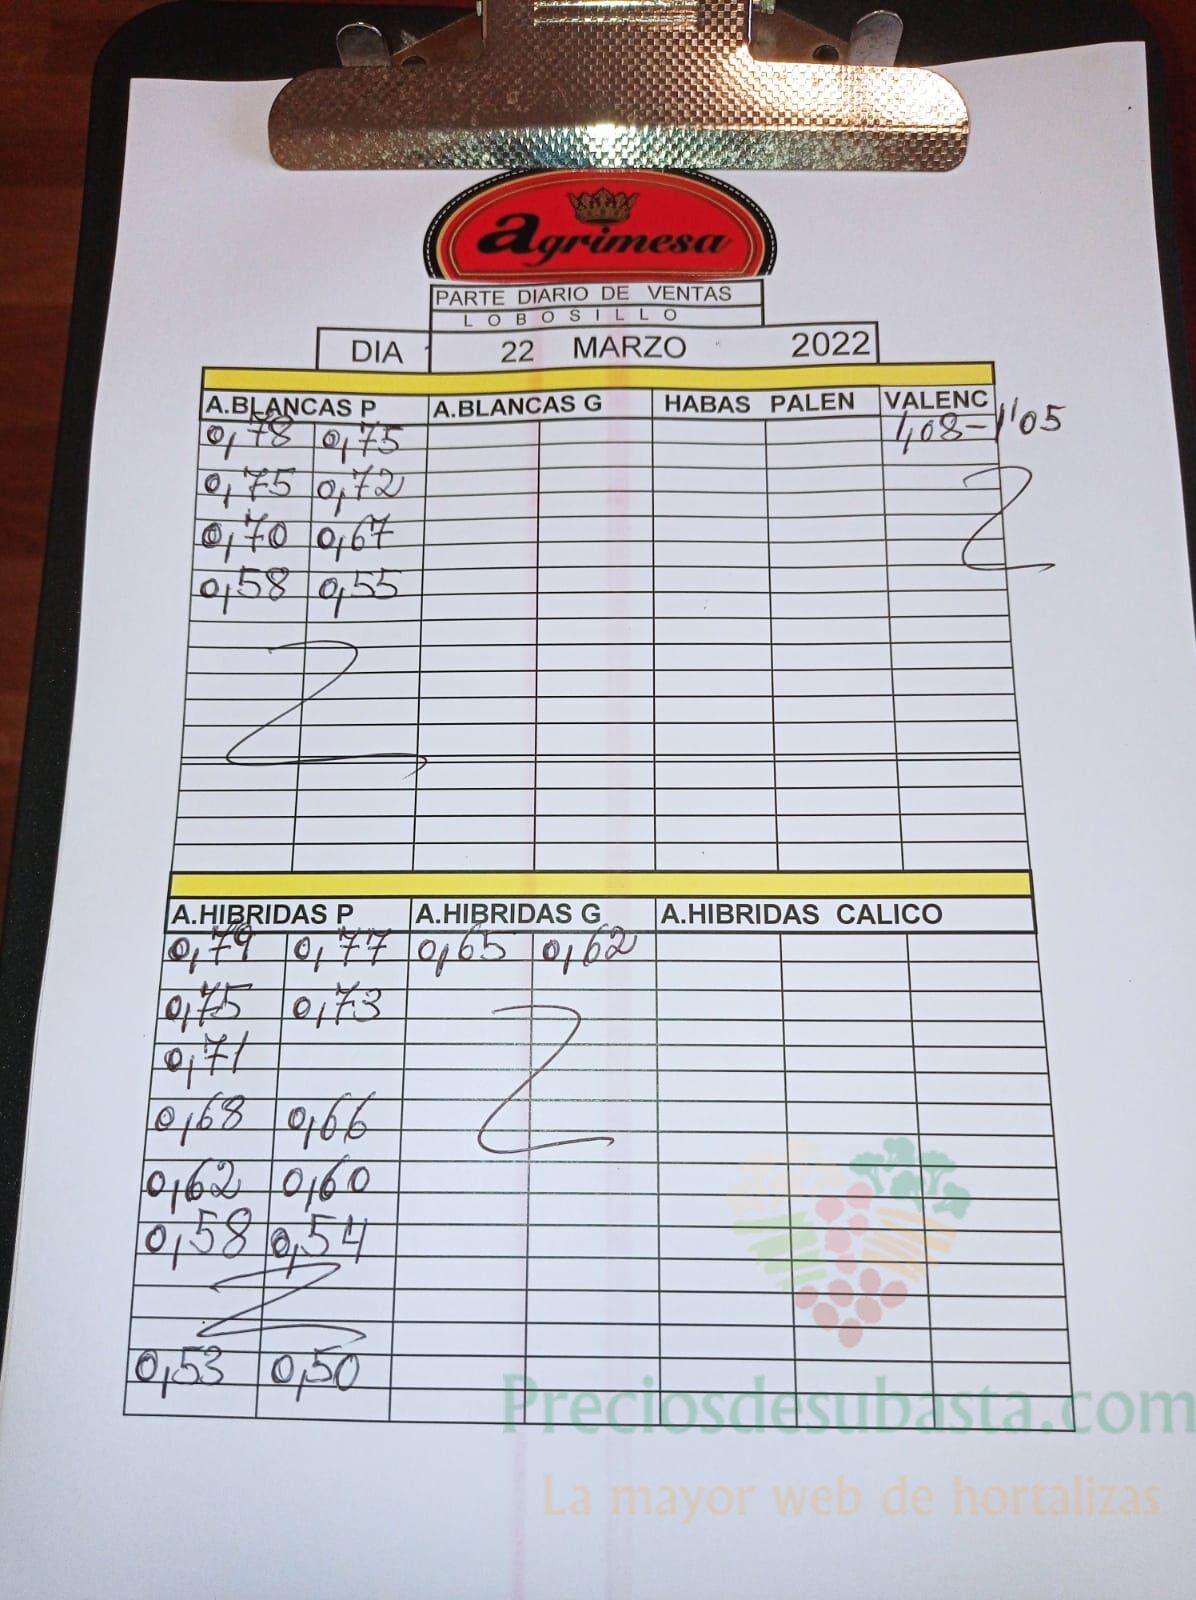 agrimesa
PARTE DIARIO DE VENTAS
LOBOSILLO
DIA 22 MARZO 2022
A.BLANCAS P A.BLANCAS G HABAS PALEN VALENC
0,78 0,75 1,08-1'05
0,75 0,72
0,70 0,67
0,58 0,55
A.HIBRIDAS P A.HIBRIDAS G A.HIBRIDAS CALICO
0,79 0,77 0,65 0,62
0,75 0,73
0,71
0,68 0,66
0,62 0,60
0,58 0,54
0,53 0,50
Preciosdesubasta.com
La mayor web de hortalizas